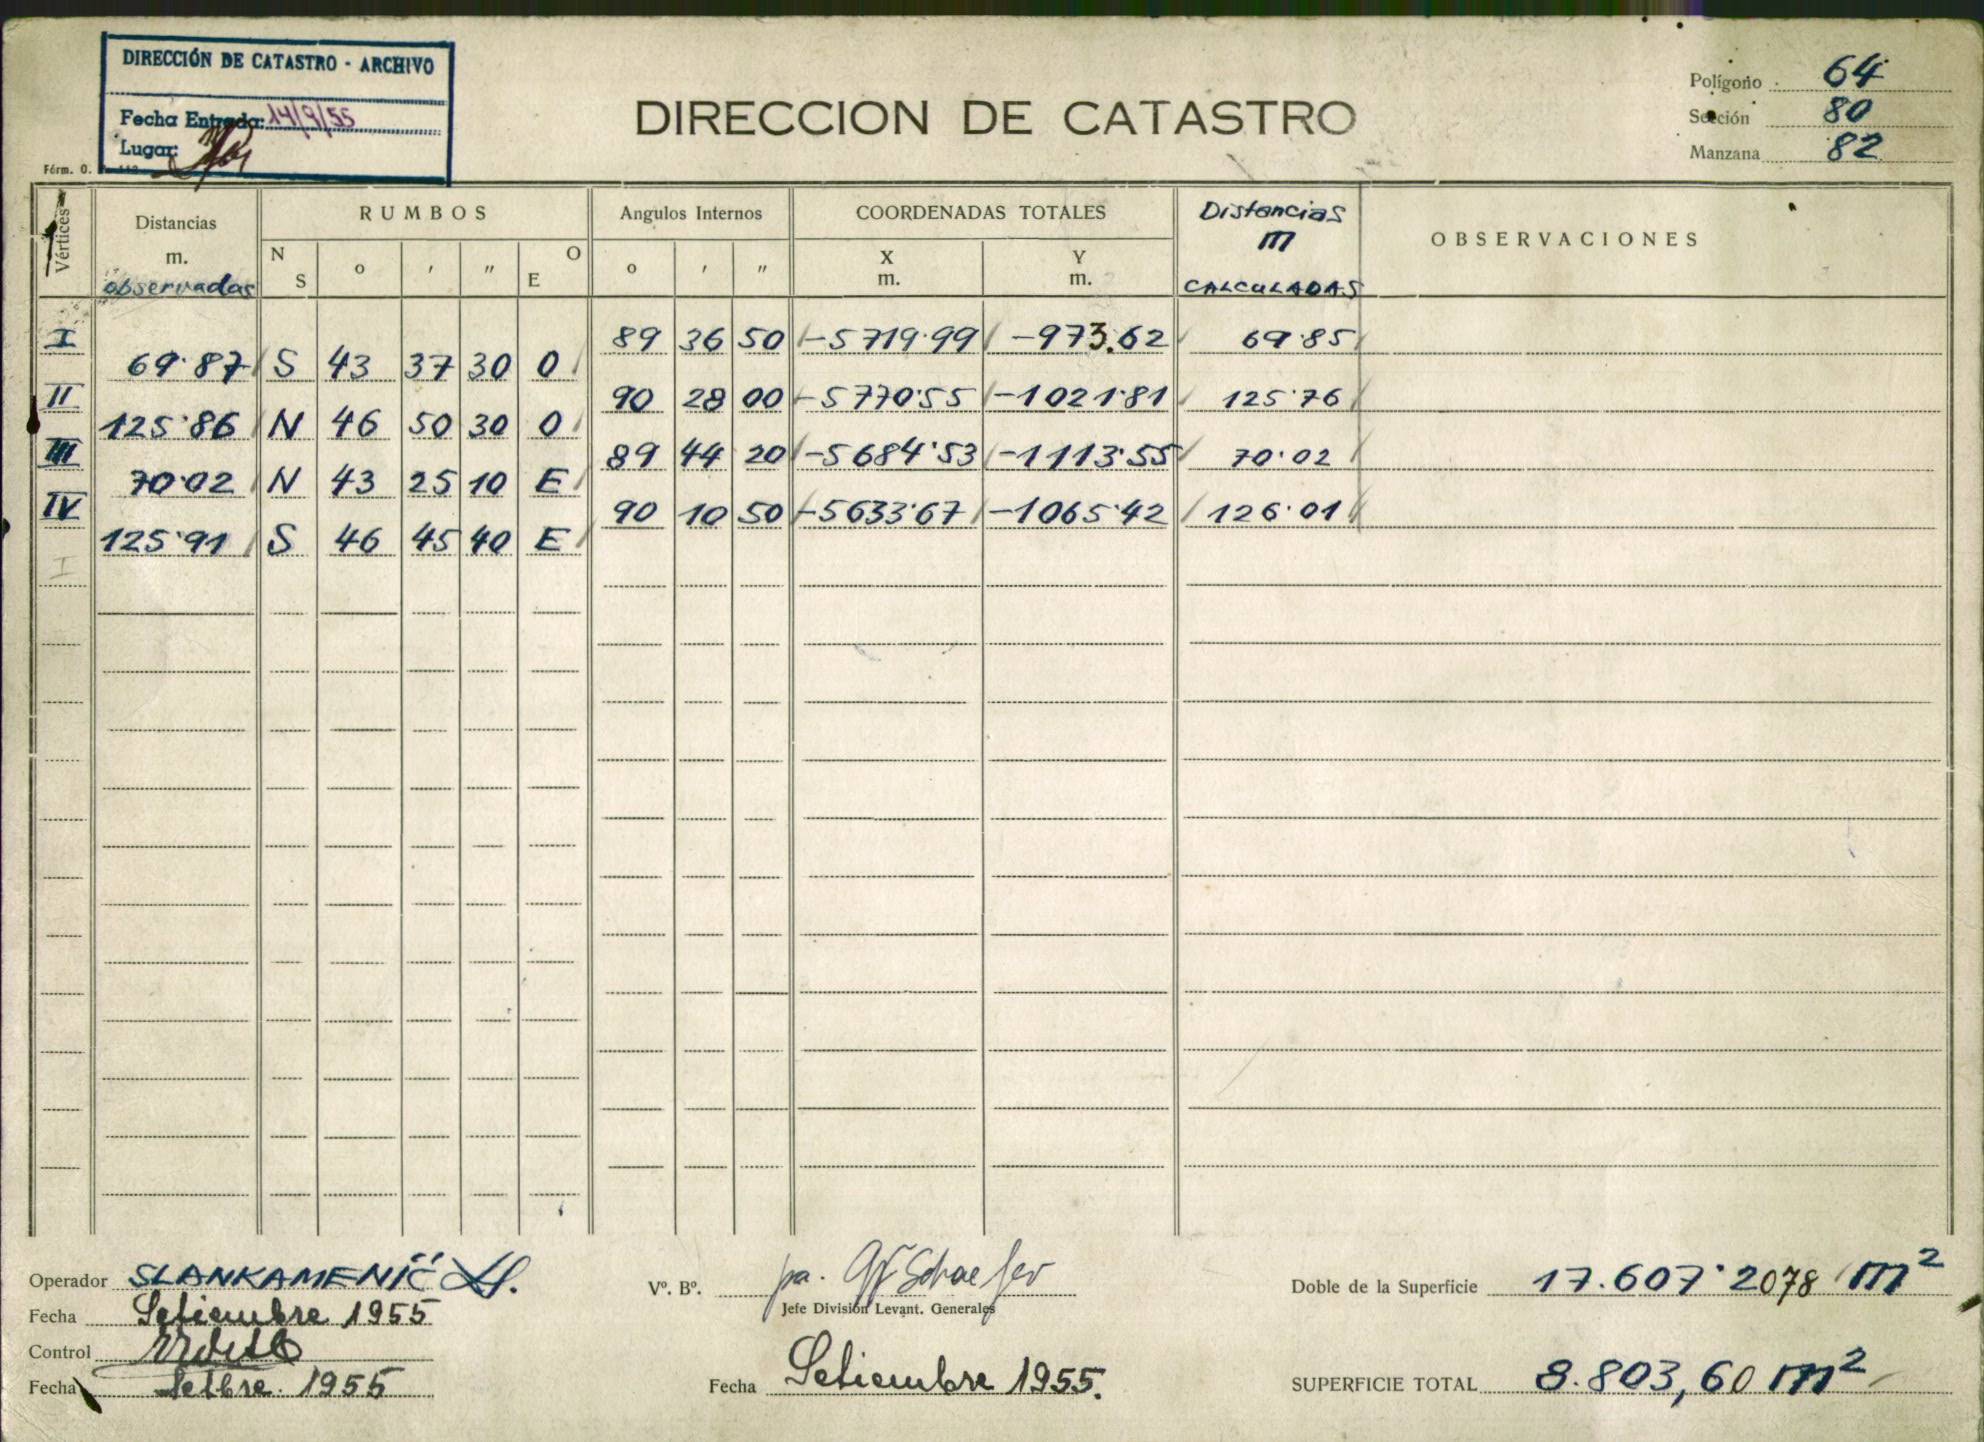 DIRECCIÓN DE CATASTRO - ARCHIVO
Fecha Entrada: 14/9/55
Lugar:
Fórm. O.
DIRECCION DE CATASTRO
Polígono 64
Sección 80
Manzana 82
Vértices
Distancias
m.
observadas
RUMBOS
N S
o
′
″
O E
Angulos Internos
o
′
″
COORDENADAS TOTALES
X
m.
Y
m.
Distancias
m
CALCULADAS
OBSERVACIONES
I 89 36 50 -5719.99 -973.62 69.85
69.87 S 43 37 30 O
II 90 28 00 -5770.55 -1021.81 125.76
125.86 N 46 50 30 O
III 89 44 20 -5684.53 -1113.55 70.02
70.02 N 43 25 10 E
IV 90 10 50 -5633.67 -1065.42 126.01
125.91 S 46 45 40 E
I
Operador SLANKAMENIĆ
Fecha Setiembre 1955
Control
Fecha Setbre. 1955
Vº. Bº. pa. Schaefer
Jefe División Levant. Generales
Fecha Setiembre 1955.
Doble de la Superficie 17.607.2078 m²
SUPERFICIE TOTAL 8.803,60 m²